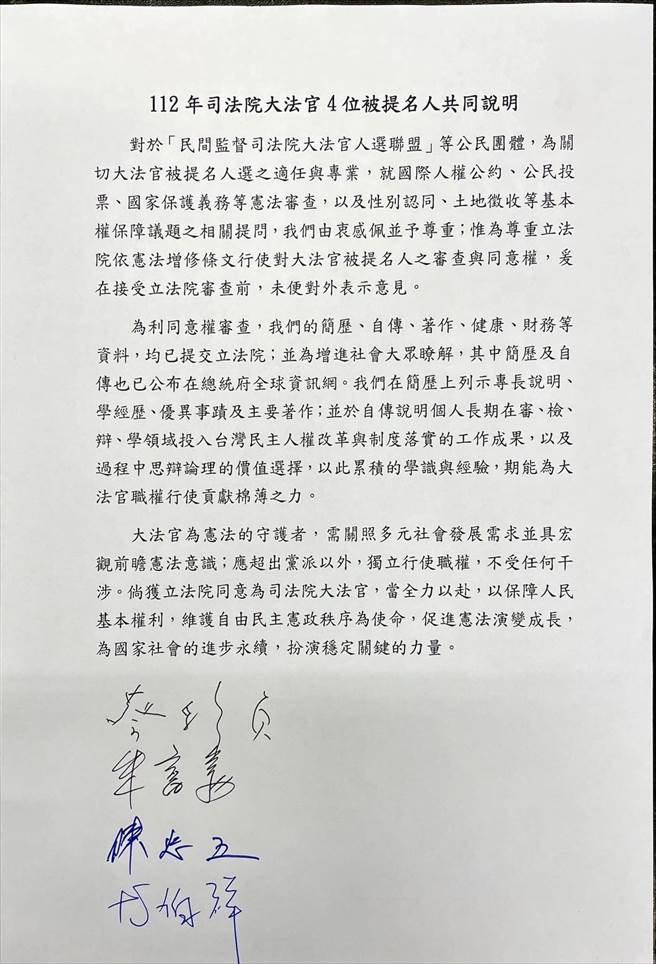 112年司法院大法官4位被提名人共同說明
對於「民間監督司法院大法官人選聯盟」等公民團體，為關
切大法官被提名人選之適任與專業，就國際人權公約、公民投
票、國家保護義務等憲法審查，以及性別認同、土地徵收等基本
權保障議題之相關提問，我們由衷感佩並予尊重；惟為尊重立法
院依憲法增修條文行使對大法官被提名人之審查與同意權，爰
在接受立法院審查前，未便對外表示意見。
為利同意權審查，我們的簡歷、自傳、著作、健康、財務等
資料，均已提交立法院；並為增進社會大眾瞭解，其中簡歷及自
傳也已公布在總統府全球資訊網。我們在簡歷上列示專長說明、
學經歷、優異事蹟及主要著作；並於自傳說明個人長期在審、檢、
辯、學領域投入台灣民主人權改革與制度落實的工作成果，以及
過程中思辯論理的價值選擇，以此累積的學識與經驗，期能為大
法官職權行使貢獻棉薄之力。
大法官為憲法的守護者，需關照多元社會發展需求並具宏
觀前瞻憲法意識；應超出黨派以外，獨立行使職權，不受任何干
涉。倘獲立法院同意為司法院大法官，當全力以赴，以保障人民
基本權利，維護自由民主憲政秩序為使命，促進憲法演變成長，
為國家社會的進步永續，扮演穩定關鍵的力量。
蔡彩貞
朱富美
陳忠五
尤伯祥